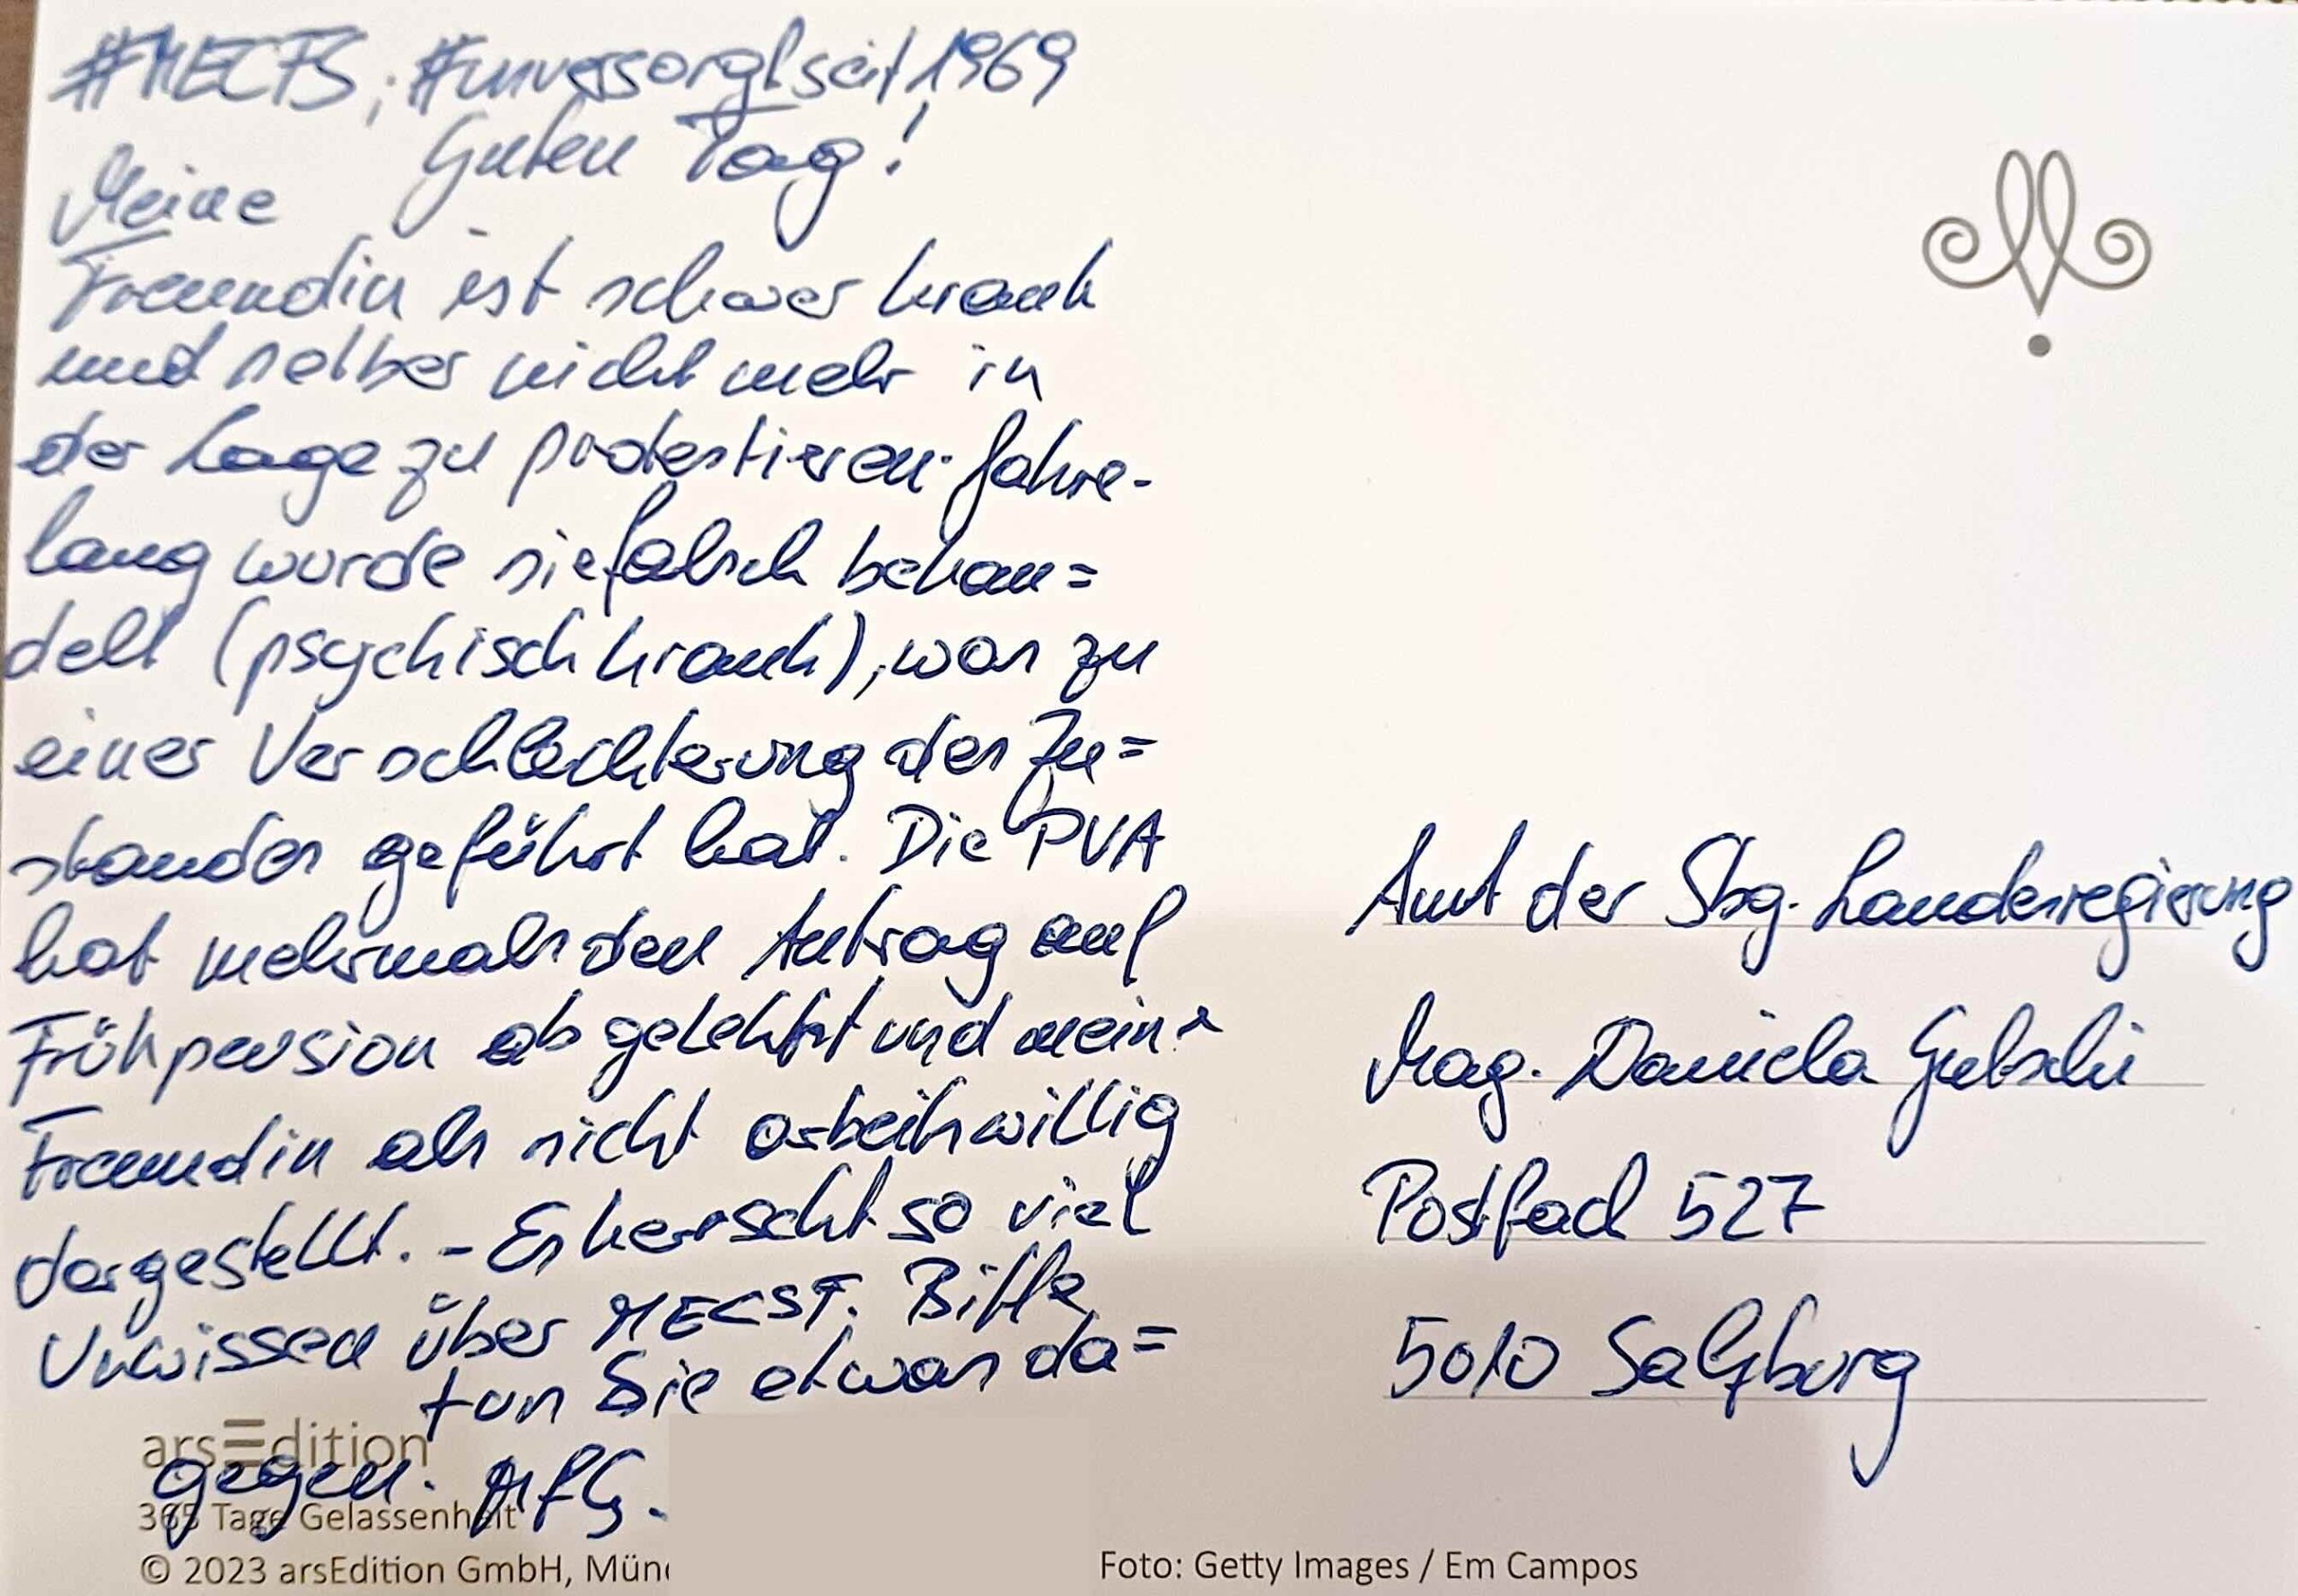 #MECFS; #unversorgtseit1969
Guten Tag!
Meine
Freundin ist schwer krank
und selber nicht mehr in
der Lage zu protestieren. Jahre-
lang wurde sie falsch behan=
delt (psychisch krank), was zu
einer Verschlechterung des Zu=
standes geführt hat. Die PVA
hat mehrmals den Antrag auf
Frühpension abgelehnt und meine
Freundin als nicht arbeitswillig
dargestellt. - Es herrscht so viel
Unwissen über MECSF. Bitte
tun Sie etwas da=
gegen. MfG.
arsEdition
365 Tage Gelassenheit
© 2023 arsEdition GmbH, Mün
Foto: Getty Images / Em Campos
Amt der Sbg. Landesregierung
Mag. Daniela Gutschi
Postfach 527
5010 Salzburg